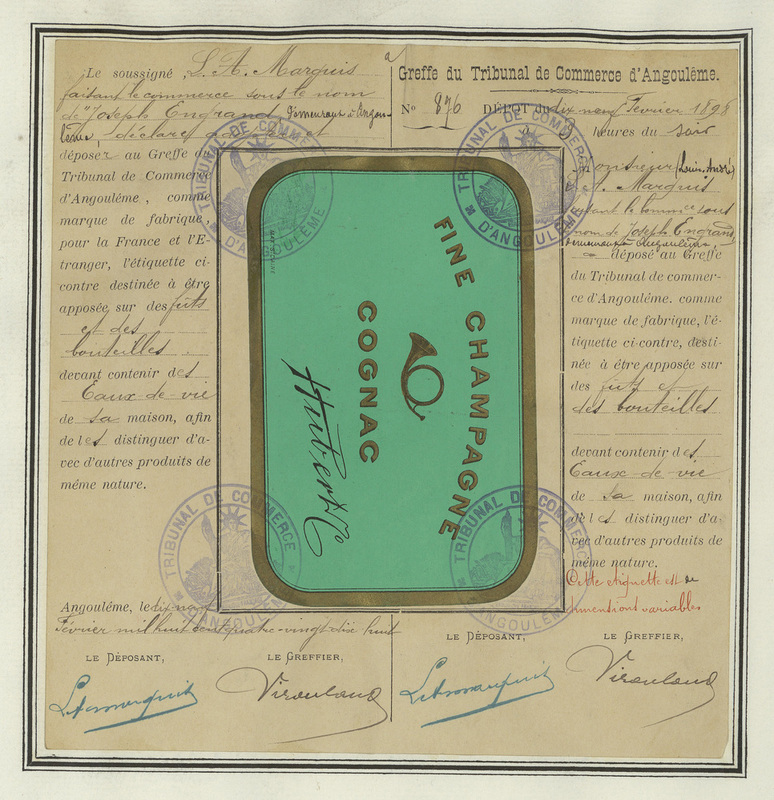 Le soussigné, L. A. Marquis
faisant le commerce sous le nom
de "Joseph Engrand demeurant à Angou-
lême, déclare et
déposer au Greffe du
Tribunal de Commerce
d'Angoulême, comme
marque de fabrique,
pour la France et l'É-
tranger, l'étiquette ci-
contre destinée à être
apposée sur des futs
et des
bouteilles.
devant contenir des
Eaux-de-vie
de sa maison, afin
de les distinguer d'a-
vec d'autres produits de
même nature.
Angoulême, le dix neuf
Février mil huit cent quatre-vingt dix huit
LE DÉPOSANT,
LE GREFFIER,
LAmarquis
Virouland
FINE CHAMPAGNE
COGNAC
Hubert & Co
Greffe du Tribunal de Commerce d'Angoulême.
No 876 DÉPOT du dix neuf Février 1898
à heures du soir
(Louis André)
L. A. Marquis
faisant le commerce sous
nom de Joseph Engrand,
demeurant à Angoulême,
a déposé au Greffe
du Tribunal de commer-
ce d'Angoulême. comme
marque de fabrique, l'é-
tiquette ci-contre, desti-
née à être apposée sur
des futs et
des bouteilles
devant contenir des
Eaux-de-vie
de sa maison, afin
de les distinguer d'a-
vec d'autres produits de
même nature.
Cette étiquette est de
dimensions variables
LE DÉPOSANT,
LE GREFFIER,
LAmarquis
Virouland
TRIBUNAL DE COMMERCE D'ANGOULÊME
TRIBUNAL DE COMMERCE D'ANGOULÊME
TRIBUNAL DE COMMERCE
TRIBUNAL DE COMMERCE D'ANGOULÊME